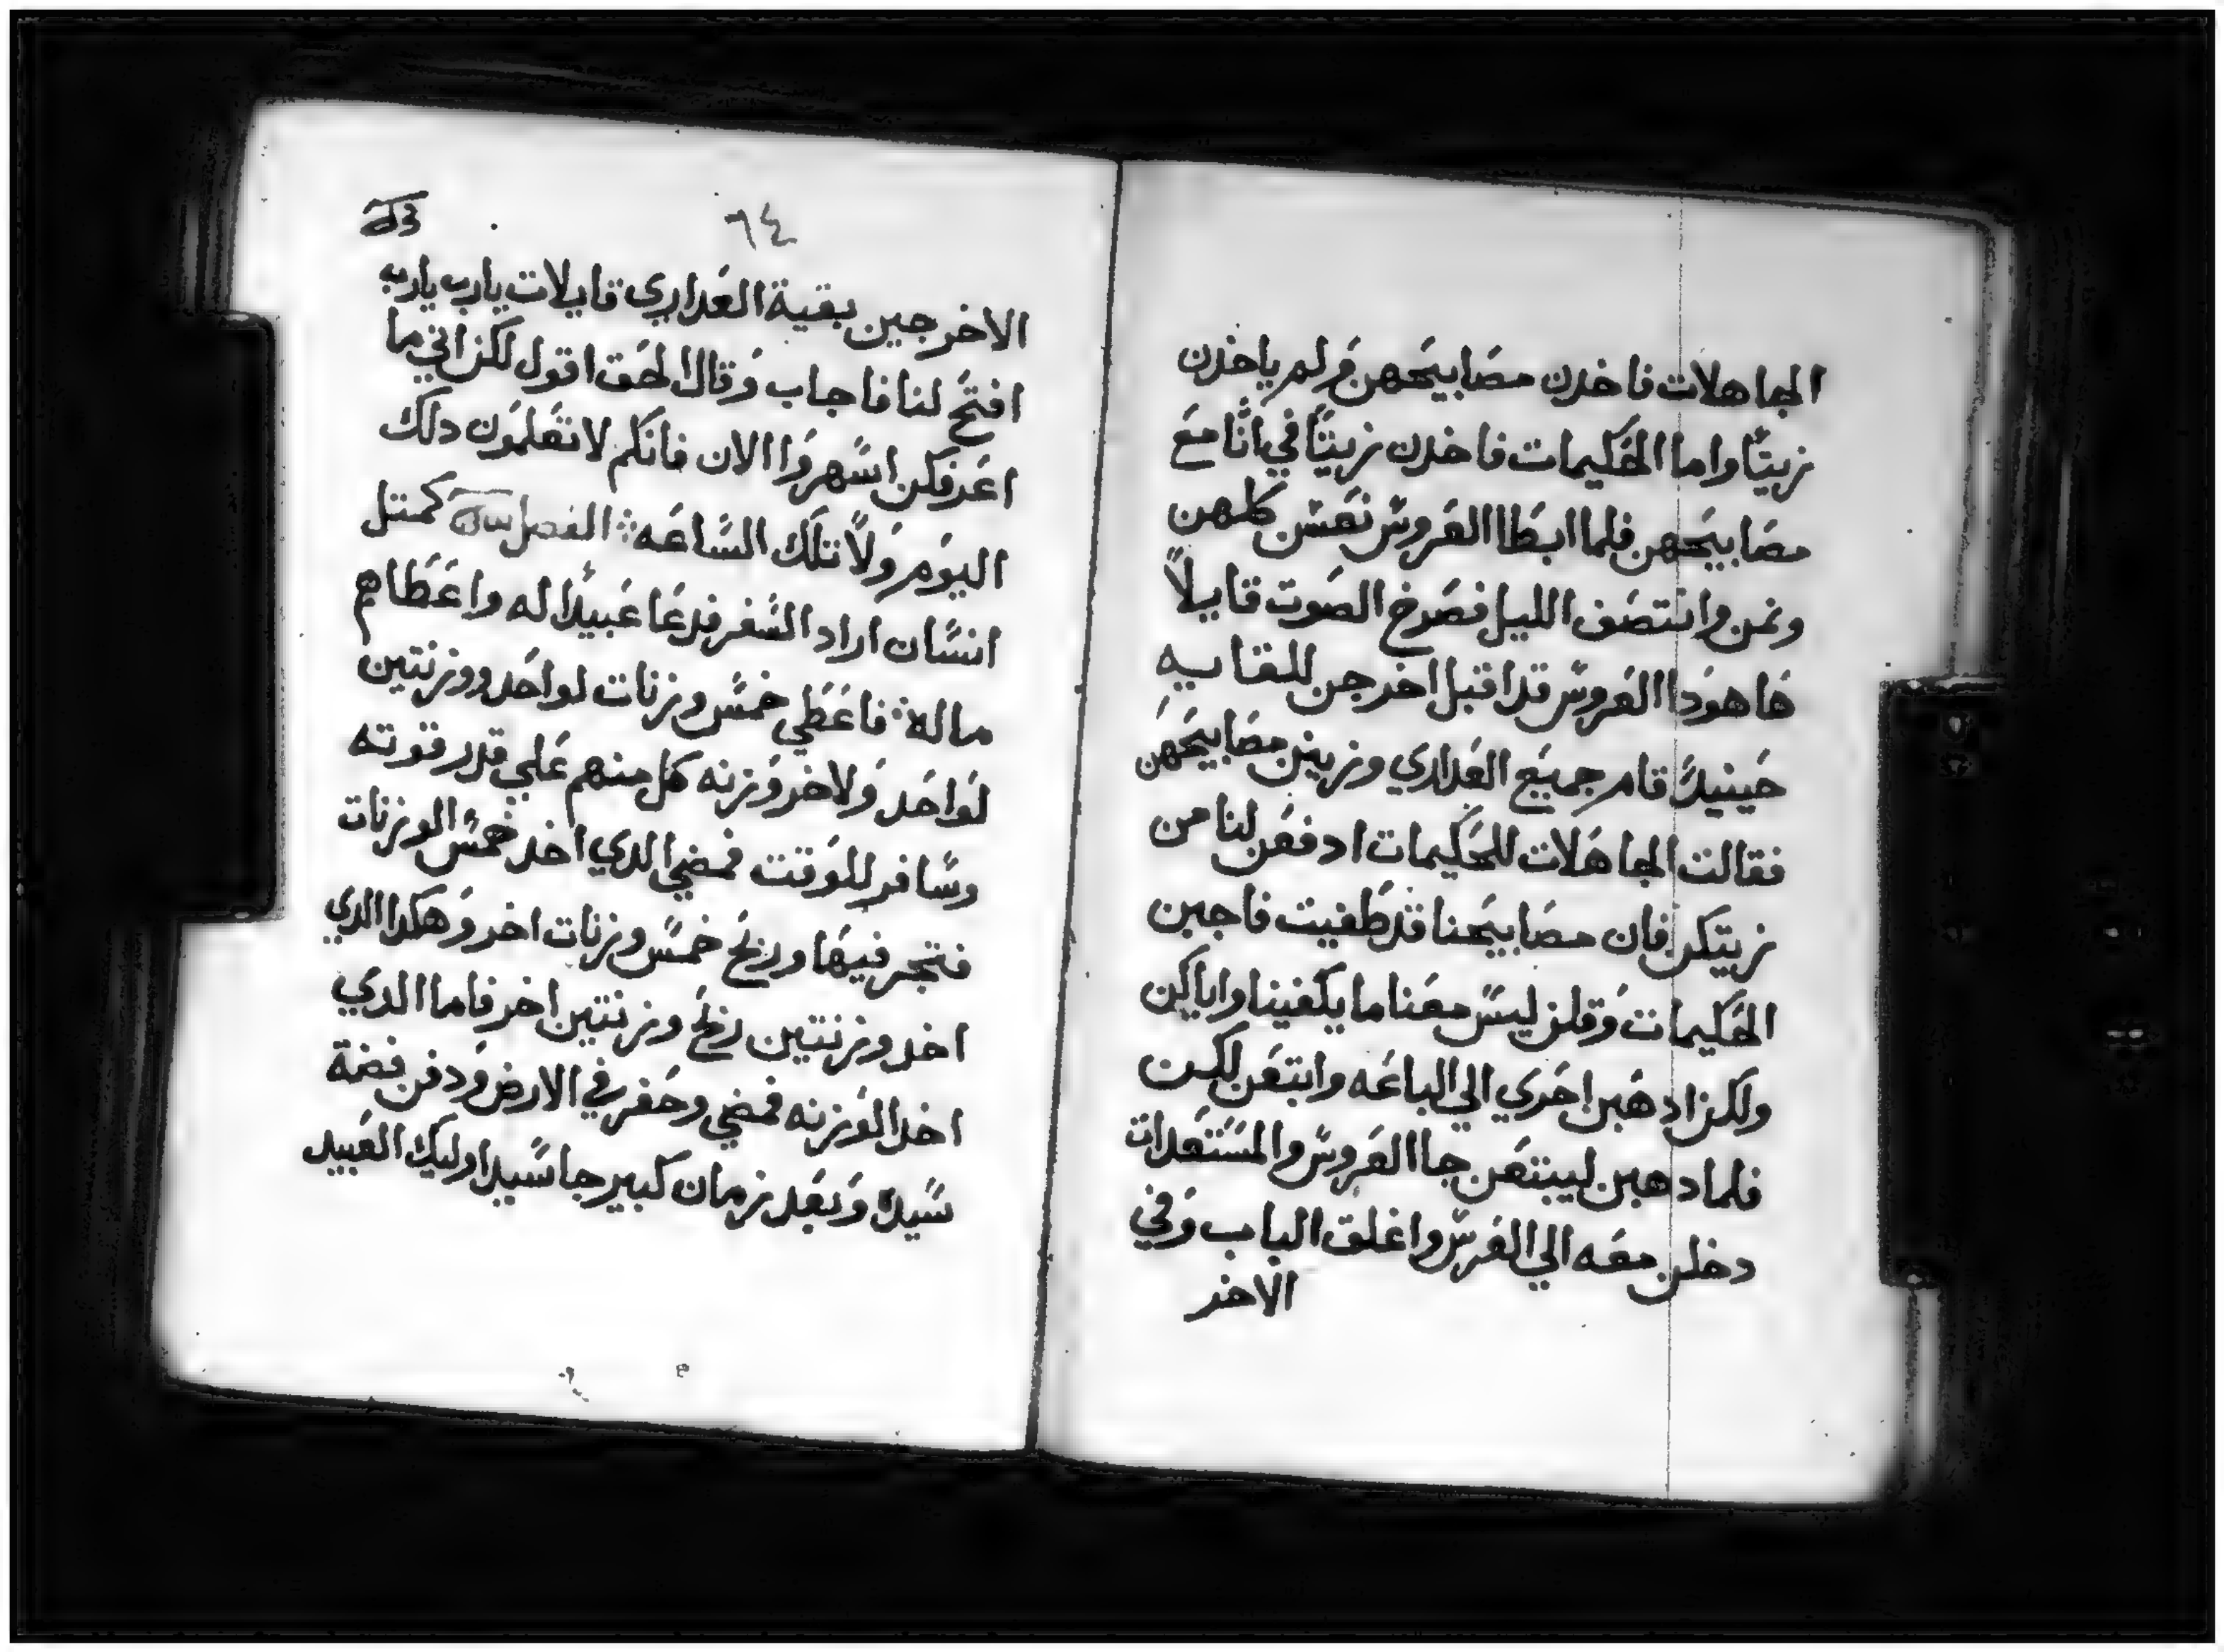 الجاهلات فاخدن مصابيحهن ولم ياخدن
زيتًا واما الحكيمات فاخدن زيتًا في انًا مع
مصابيحهن فلما ابطا العروس نعسن كلهن
ونمن وانتصف الليل فصرخ الصوت قايلاً
هاهودا العروس قد اقبل اخرجن للقايه
حينيدً قام جميع العداري وزين مصابيحهن
فقالت الجاهلات للحكيمات ادفعن لنا من
زيتكن فان مصابيحنا قد طفيت فاجبن
الحكيمات وقلن ليس معنا ما يكفينا واياكن
ولكن ادهبن احري الي الباعه وابتعن لكن
فلما دهبن ليبتعن جا العروس والمستعدات
دخلن معه الي العرس واغلق الباب وفي
الاخر
٦٤
الاخر جين بقية العداري قايلات يارب يارب
افتح لنا فاجاب وقال الحق اقول لكن اني ما
اعرفكن اسهروا الان فانكم لا تعلمون دلك
اليوم ولا تلك الساعه ∴ الفصل كمتل
انسان اراد السفر فدعا عبيدًا له واعطاهم
ماله ∴ فاعطي خمس وزنات لواحد ووزنتين
لواحد ولاخر وزنه كل منهم علي قدر قوته
وسافر للوقت فمضي الدي اخد خمس الوزنات
فتجر فيها وربح خمس وزنات اخر وهكدا الدي
اخد وزنتين ربح وزنتين اخر فاما الدي
اخد الوزنه فمضي وحفر في الارض ودفن فضة
سيده وبعد زمان كبير جا سيد اوليك العبيد